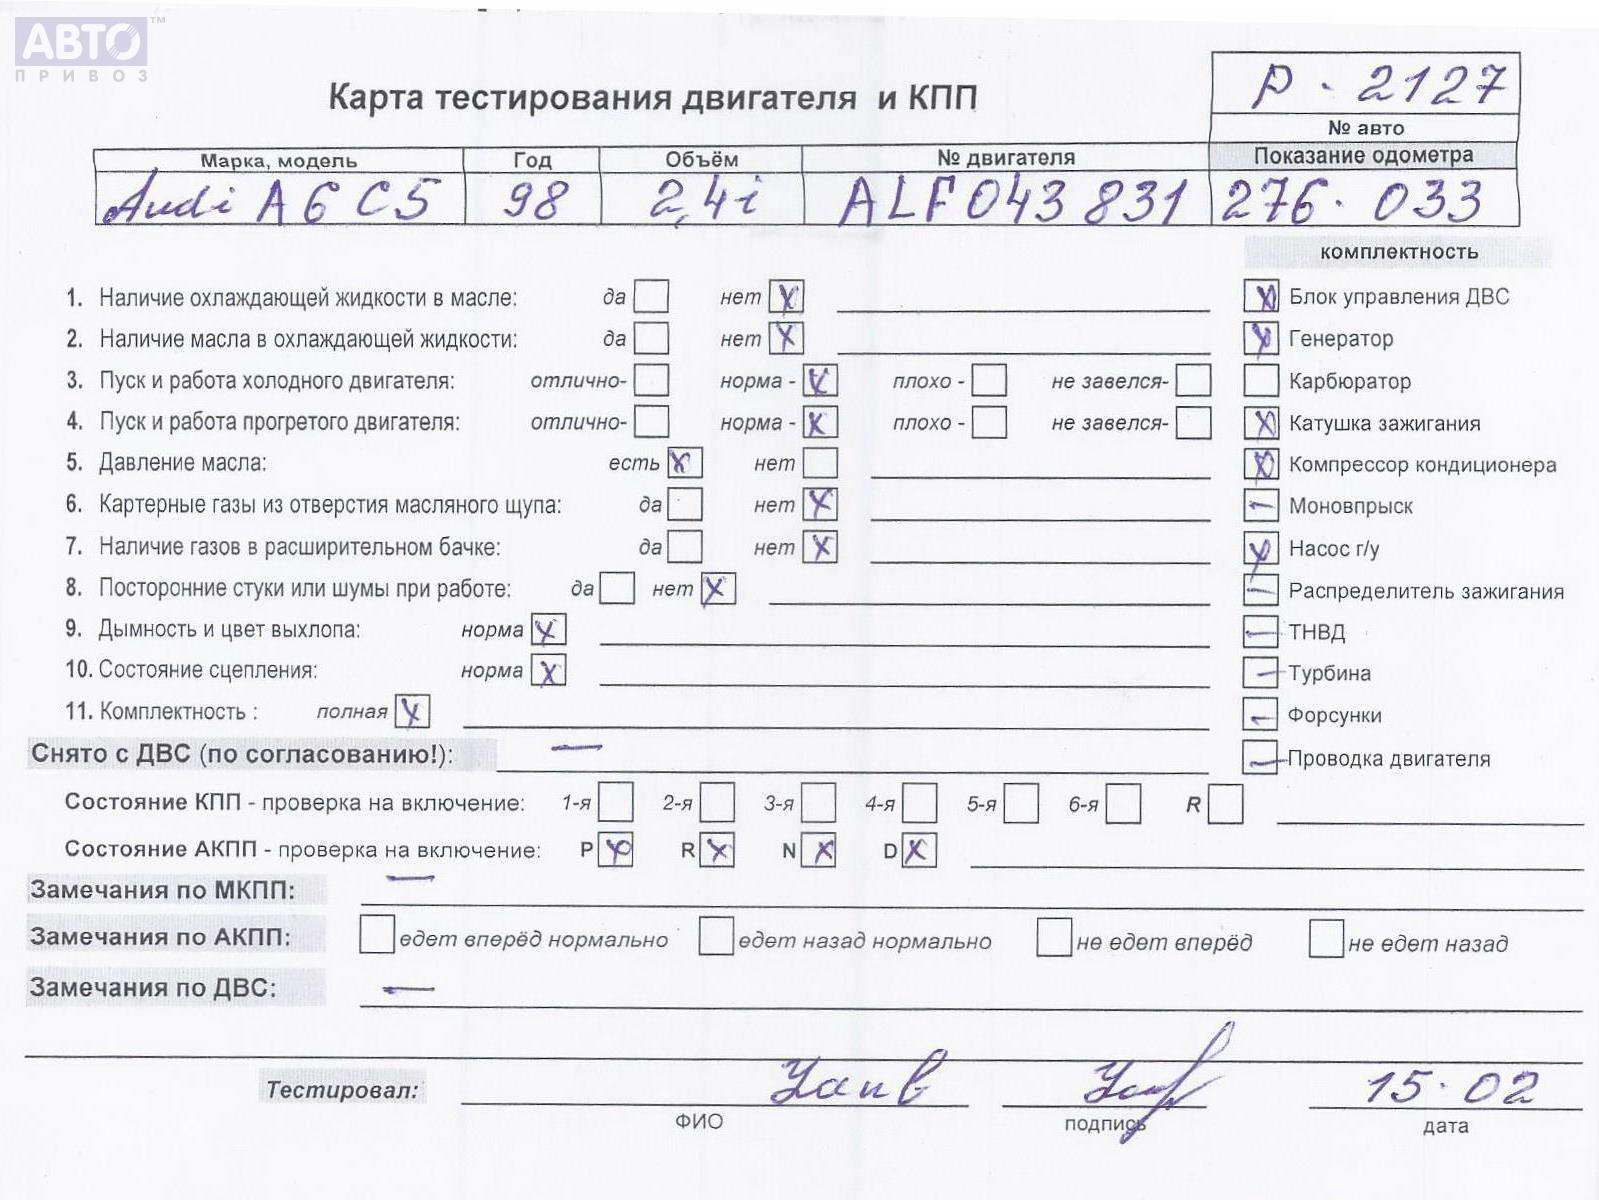 АВТО™
ПРИВОЗ
Карта тестирования двигателя и КПП
P - 2127
№ авто
Марка, модель Год Объём № двигателя Показание одометра
Audi A6 C5 98 2,4i ALF 043 831 276. 033
комплектность
1. Наличие охлаждающей жидкости в масле: да нет X Блок управления ДВС
2. Наличие масла в охлаждающей жидкости: да нет X Генератор
3. Пуск и работа холодного двигателя: отлично- норма - X плохо - не завелся- Карбюратор
4. Пуск и работа прогретого двигателя: отлично- норма - X плохо - не завелся- Катушка зажигания
5. Давление масла: есть X нет Компрессор кондиционера
6. Картерные газы из отверстия масляного щупа: да нет X Моновпрыск
7. Наличие газов в расширительном бачке: да нет X Насос г/у
8. Посторонние стуки или шумы при работе: да нет X Распределитель зажигания
9. Дымность и цвет выхлопа: норма X ТНВД
10. Состояние сцепления: норма X Турбина
11. Комплектность : полная X Форсунки
Снято с ДВС (по согласованию!): — Проводка двигателя
Состояние КПП - проверка на включение: 1-я 2-я 3-я 4-я 5-я 6-я R
Состояние АКПП - проверка на включение: P X R X N X D X
Замечания по МКПП: —
Замечания по АКПП: едет вперёд нормально едет назад нормально не едет вперёд не едет назад
Замечания по ДВС: —
Тестировал: 15.02
ФИО подпись дата